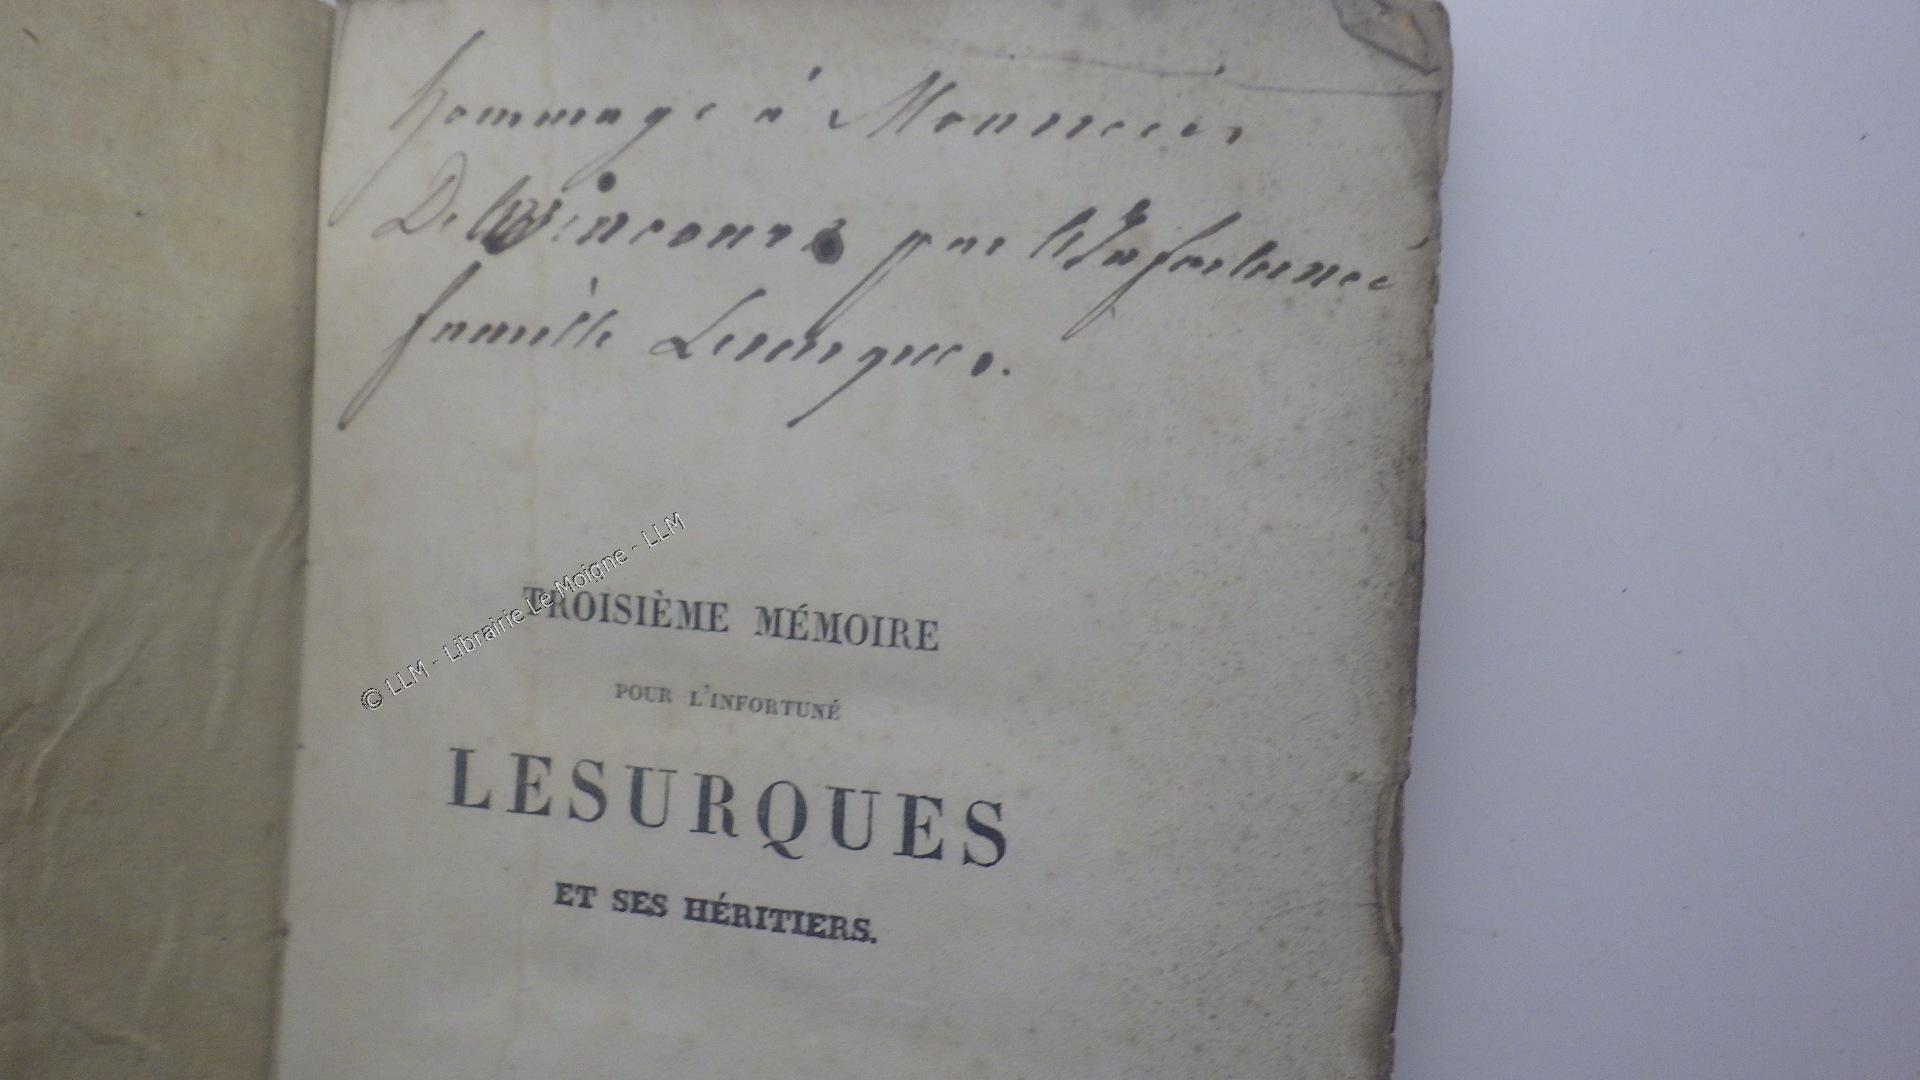 hommage à Monsieur
par l'Infortunée
famille Lesurques.
© LLM - Librairie Le Moigne - LLM
TROISIÈME MÉMOIRE
POUR L'INFORTUNÉ
LESURQUES
ET SES HÉRITIERS.